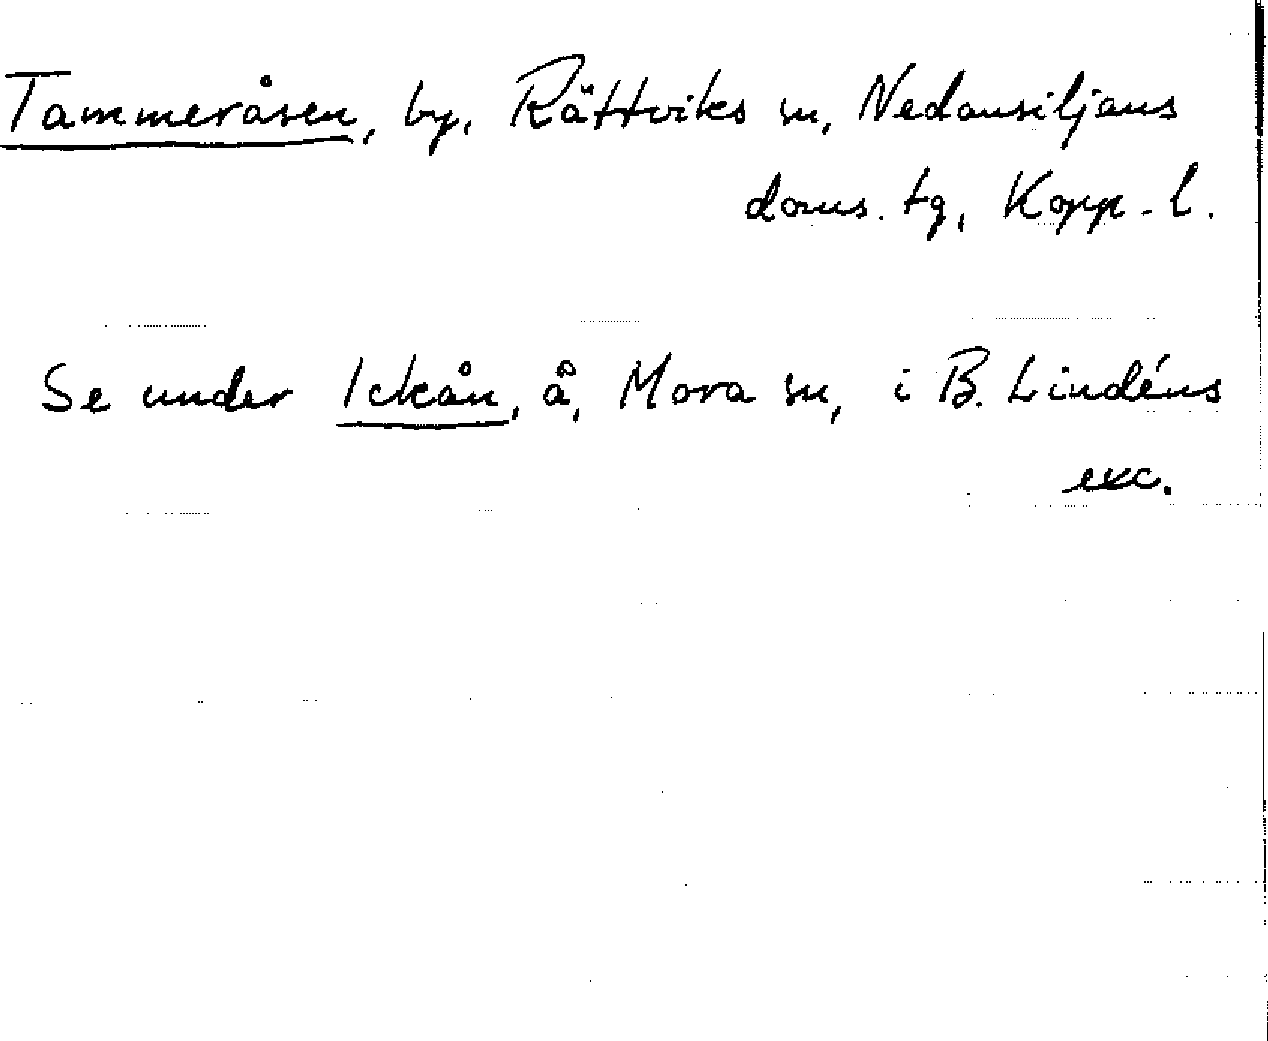 Tammeråsen, by, Rättviks sn, Nedansiljans
doms. tg, Kopp. l.
Se under Ickån, å, Mora sn, i B. Lindéns
exc.